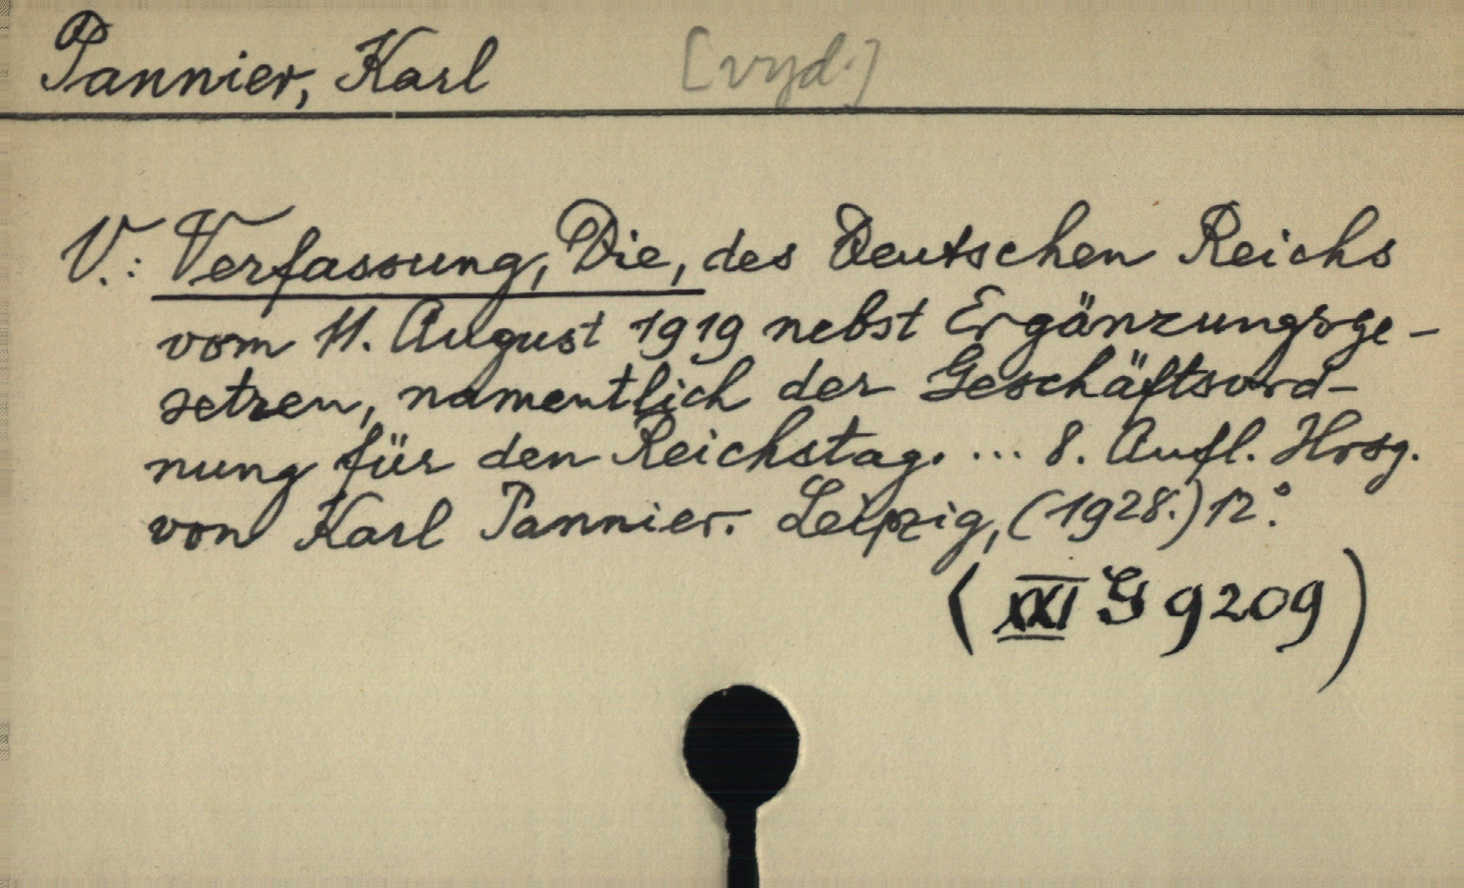 Pannier, Karl [vyd.]
V.: Verfassung, Die, des Deutschen Reichs
vom 11. August 1919 nebst Ergänzungsge-
setzen, namentlich der Geschäftsord-
nung für den Reichstag. ... 8. Aufl. Hrsg.
von Karl Pannier. Leipzig, (1928.) 12°.
(XXI G 9209)